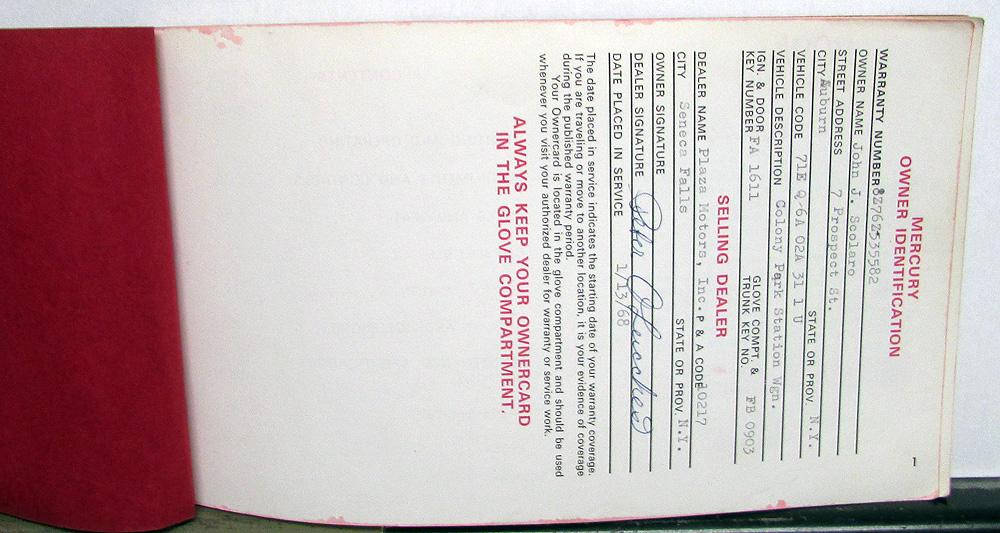 1
MERCURY
OWNER IDENTIFICATION
WARRANTY NUMBER 8Z76Z535582
OWNER NAME John J. Scolaro
STREET ADDRESS 7 Prospect St.
CITY Auburn STATE OR PROV. N.Y.
VEHICLE CODE 71E Q-6A 02A 31 1 U
VEHICLE DESCRIPTION Colony Park Station Wgn.
IGN. & DOOR KEY NUMBER FA 1611 GLOVE COMPT. & TRUNK KEY NO. FB 0903
SELLING DEALER
DEALER NAME Plaza Motors, Inc. P & A CODE 10217
CITY Seneca Falls STATE OR PROV. N.Y.
OWNER SIGNATURE
DEALER SIGNATURE Peter
DATE PLACED IN SERVICE 1/13/68
The date placed in service indicates the starting date of your warranty coverage.
If you are traveling or move to another location, it is your evidence of coverage
during the published warranty period.
Your Ownercard is located in the glove compartment and should be used
whenever you visit your authorized dealer for warranty or service work.
ALWAYS KEEP YOUR OWNERCARD
IN THE GLOVE COMPARTMENT.